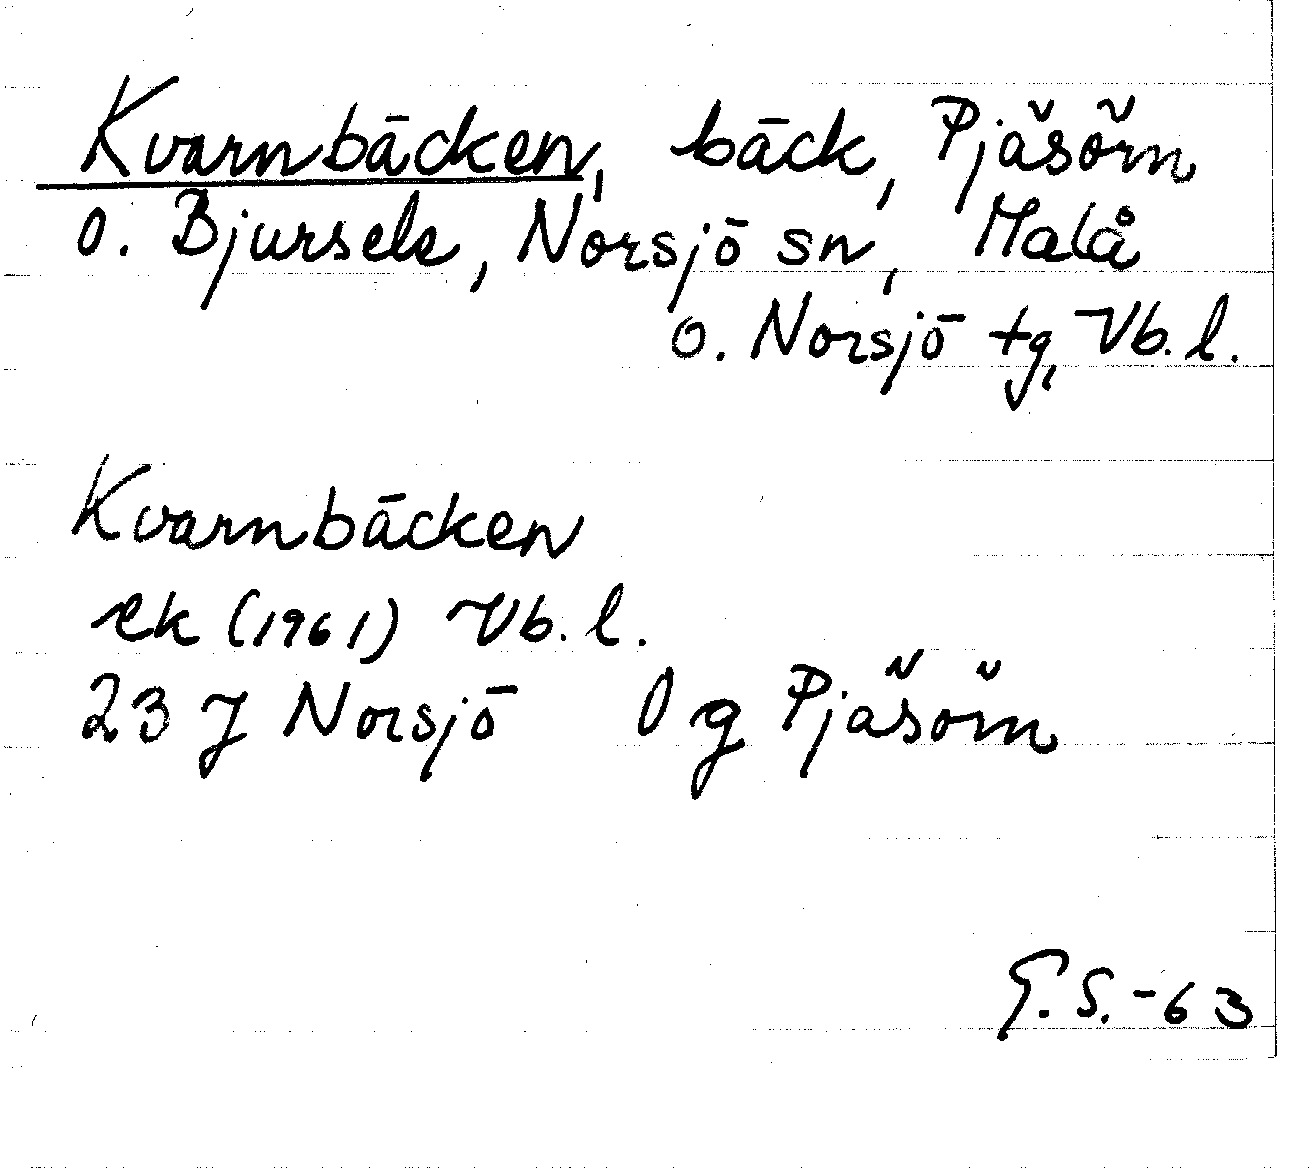 Kvarnbäcken, bäck, Pjäsörn
o. Bjursele, Norsjö sn, Malå
o. Norsjö tg, Vb. l.
Kvarnbäcken
ek (1961) Vb. l.
23 J Norsjö 0 g Pjäsörn
G. S. -63